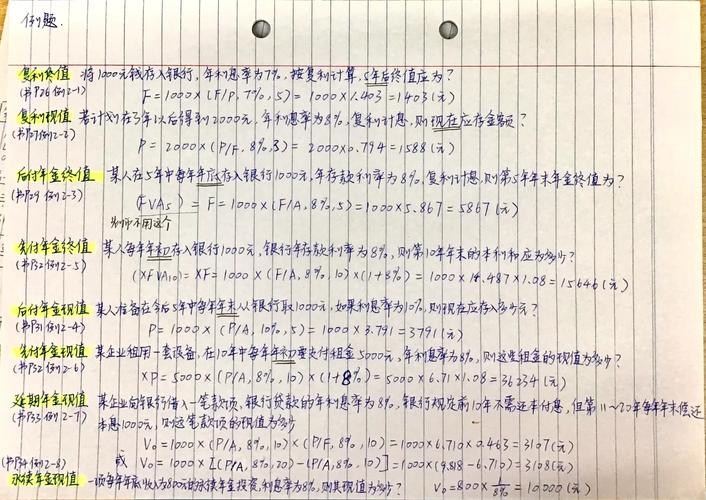 例题.
复利终值 将1000元钱存入银行,年利息率为7%,按复利计算,5年后终值应为?
(书P26例2-1) F=1000×(F/P,7%,5)=1000×1.403=1403(元)
复利现值 若计划在3年以后得到2000元,年利息率为8%,复利计息,则现在应存金额?
(书P27例2-2) P=2000×(P/F,8%,3)=2000×0.794=1588(元)
后付年金终值 某人在5年中每年年底存入银行1000元,年存款利率为8%,复利计息,则第5年年末年金终值为?
(书P29例2-3) (FVA5)=F=1000×(F/A,8%,5)=1000×5.867=5867(元)
不用这个
先付年金终值 某人每年年初存入银行1000元,银行年存款利率为8%,则第10年年末的本利和应为多少?
(书P32例2-5) (XFVA10)=XF=1000×(F/A,8%,10)×(1+8%)=1000×14.487×1.08=15646(元)
后付年金现值 某人准备在今后5年中每年年末从银行取1000元,如果利息率为10%,则现在应存入多少元?
(书P31例2-4) P=1000×(P/A,10%,5)=1000×3.791=3791(元)
先付年金现值 某企业租用一套设备,在10年中每年年初要支付租金5000元,年利息率为8%,则这些租金的现值为多少?
(书P32例2-6) XP=5000×(P/A,8%,10)×(1+8%)=5000×6.71×1.08=36234(元)
延期年金现值 某企业向银行借入一笔款项,银行贷款的年利息率为8%,银行规定前10年不需还本付息,但第11~20年每年年末偿还
(书P33例2-7) 本息1000元,则这笔款项的现值为多少
V0=1000×(P/A,8%,10)×(P/F,8%,10)=1000×6.710×0.463=3107(元)
或 V0=1000×[(P/A,8%,20)-(P/A,8%,10)]=1000×(9.818-6.710)=3108(元)
(书P34例2-8)
永续年金现值 一项每年年底收入为800元的永续年金投资,利息率为8%,则其现值为多少? V0=800×1/8%=10000(元)